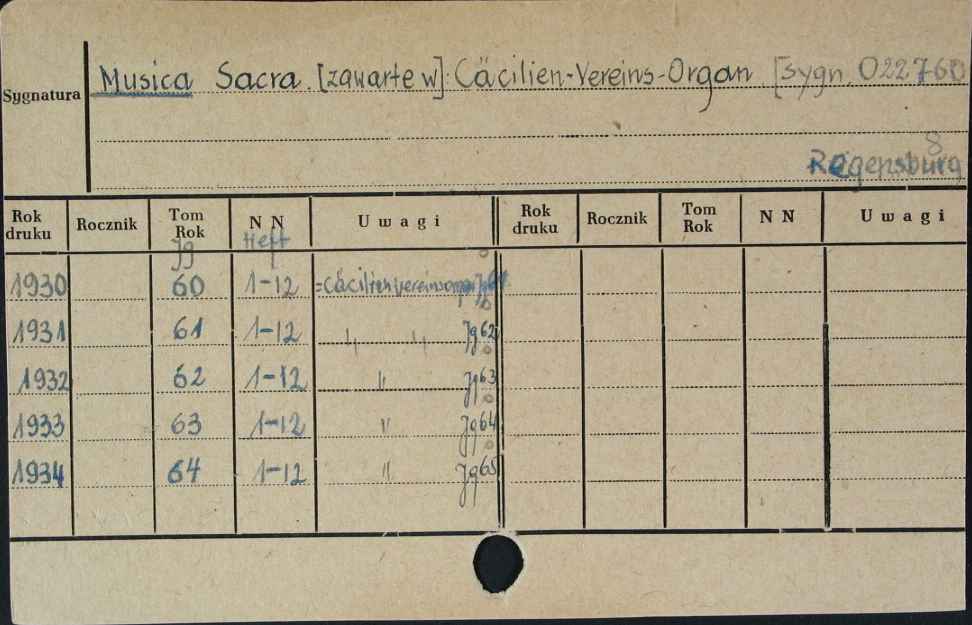 Sygnatura
Musica Sacra. [zawarte w]: Cäcilien-Vereins-Organ [sygn. 022760
8
Regensburg
Rok druku Rocznik Tom Rok NN Uwagi Rok druku Rocznik Tom Rok NN Uwagi
Jg Heft
1930 60 1-12 =Cäcilienvereinsorgan Jg 61
1931 61 1-12 " " Jg 62
1932 62 1-12 " Jg 63
1933 63 1-12 " Jg 64
1934 64 1-12 " Jg 65